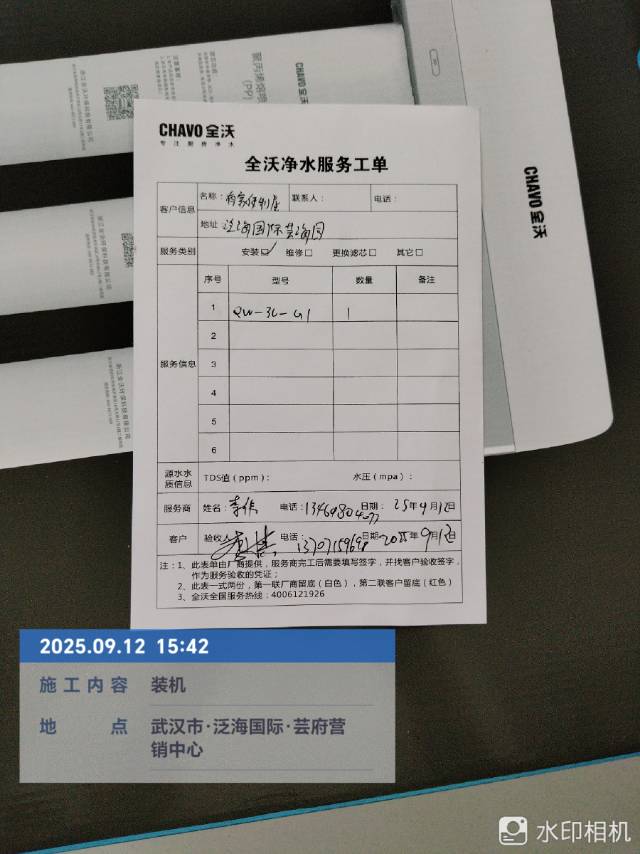 CHAVO 全沃
专注厨房净水
全沃净水服务工单
客户信息 名称： 联系人： 电话：
地址 泛海国际芸海园
服务类别 安装☑ 维修□ 更换滤芯□ 其它□
服务信息 序号 型号 数量 备注
1 QW-3L-G1 1
2
3
4
5
6
源水水质信息 TDS值（ppm）： 水压（mpa）：
服务商 姓名： 电话： 日期： 25年9月12日
客户 验收人 电话： 日期： 2025年9月12日
注：1、此表单由厂商提供，服务商完工后需要填写签字，并找客户验收签字，
作为服务验收的凭证；
2、此表一式两份，第一联厂商留底（白色），第二联客户留底（红色）
3、全沃全国服务热线：4006121926
CHAVO 全沃
CHAVO 全沃
聚丙烯熔喷
(PP)
2025.09.12 15:42
施工内容 装机
地点 武汉市·泛海国际·芸府营
销中心
水印相机